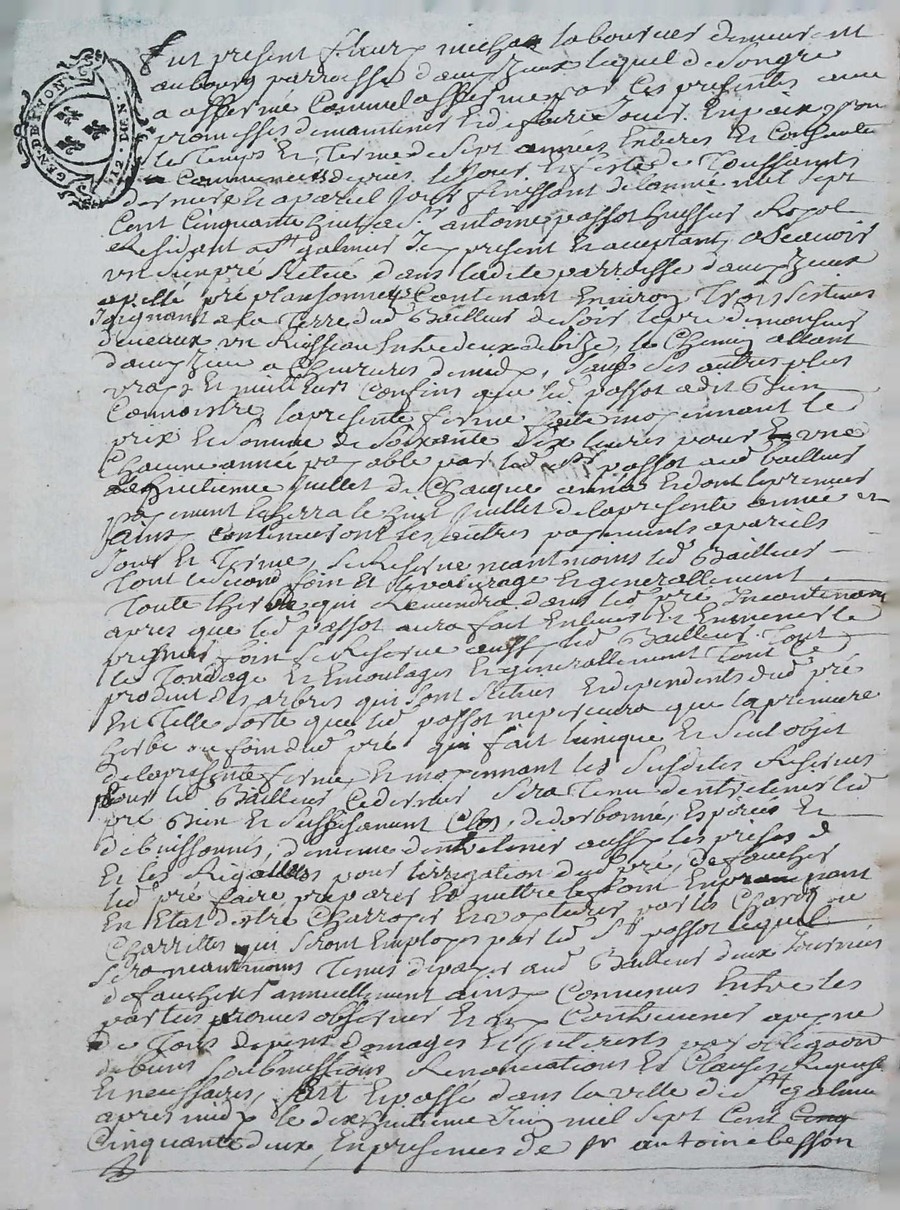 GEN. DE LYON
Fut present fleury michas laboureur demeurant
au bourg parroisse d'aveyzieux lequel de son gre
a affermé comme il afferme par ces presentes avec
promesses de maintenir et de faire Jouir En paix
le temps Et Terme de Sept années Entieres Et Consecutives
Commencés depuis le Jour Et feste de Toussaints
derniere Et a pareil Jour finissant de l'année mil Sept
Cent Cinquante huit a Sr antoine passot huissier Royal
Residant a St galmier Icy present Et acceptant, a Scavoir
un sien pré Scitué dans ladite parroisse d'aveyzieux
apellé pré Contenant Environ Trois
Joignant a la Terre dud Bailleur de Soir le pré de monsieur
un Ruisseau Entre deux de bize, le Chemin allant
d'aveyzieu a Chevrieres de midy, Sauf Ses autres plus
vrays Et meilleurs Confins que led passot a dit Bien
Connoistre, la presente ferme faite moyennant le
prix Et Somme de Soixante Dix livres pour une
Chacune année payable par led Sr passot aud bailleur
le huitieme Juillet de Chaque année Et dont le premier
payement Echerra le huit Juillet de la presente année Et
ainsy Continueront les autres payements a pareils
Jour Et Terme, Se Reserve neantmoins led Bailleur
Tout le Second foin Et pasturage Et generallement
Toute l'herbe qui Reviendra dans led pré Incontinant
apres que led passot aura fait Enlever Et Emmener le
premier foin Se Reserve aussy led Bailleur Tout
le Tondage Et Emoulages Et generallement Tout le
produit des arbres qui Sont Scitués Et dependents dud pré
En Telle Sorte que led passot ne percevra que la premiere
herbe ou foin dud pré qui fait l'unique Et Seul objet
de la presente ferme Et moyennant les Susdites Reserves
pour led Bailleur Ce dernier Sera Tenu d'entretenir led
pré Bien Et Suffisament Clos, Et
de buissonnés, de meme d'entretenir aussy les prises d
Et les Rigolles pour l'irrigation dud pré, de faucher
led pré faire preparer Et mettre le foin
En Etat d'etre Charroyé Et voyturé par les Chards ou
Charrettes qui Seront Employés par led Sr passot lequel
Sera neantmoins Tenus de payer aud Bailleur deux Journées
de faucheur annuellement ainsy Convenus Entre les
parties promis observer Et n'y Contrevenir a peyne
de Tous depens domages Et Interests par obligaon
de biens Soubmissions Renonciations Et Clauses Requises
Et necessaires, fait Et passé dans la ville de St galmier
apres midy le dix huitieme Juin mil Sept Cent Cinq
Cinquante deux, En presences de Sr antoine besson